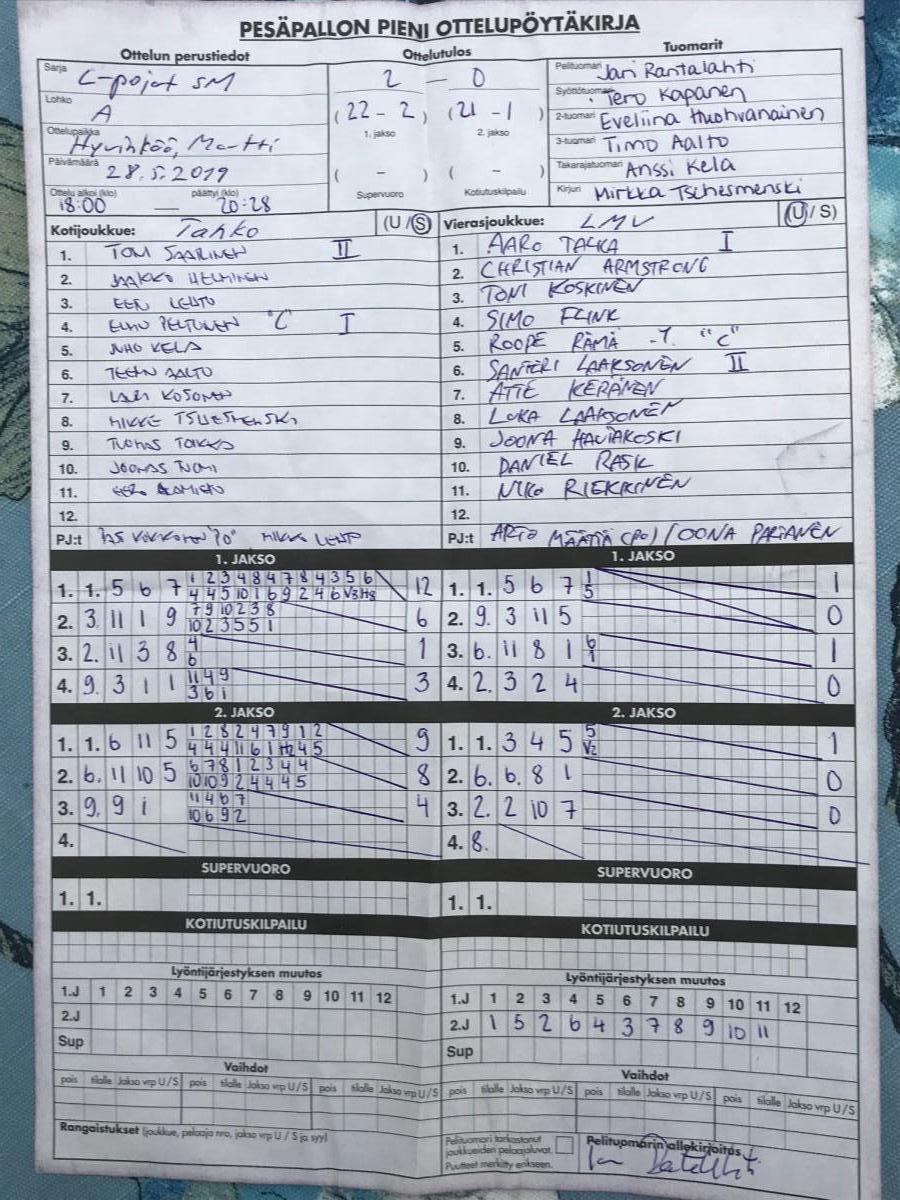 PESÄPALLON PIENI OTTELUPÖYTÄKIRJA
Ottelun perustiedot
Ottelutulos
Tuomarit
Sarja C-pojat SM
Lohko A
Ottelupaikka Hyvinkää, Martti
Päivämäärä 28.5.2019
Ottelu alkoi (klo) 18:00 päättyi (klo) 20:28
2 - 0
(22 - 2) (21 - 1)
1. jakso 2. jakso
( - ) ( - )
Supervuoro Kotiutuskilpailu
Pelituomari Jari Rantalahti
Syöttötuomari Tero Kapanen
2-tuomari Eveliina Huohvanainen
3-tuomari Timo Aalto
Takarajatuomari Anssi Kela
Kirjuri Mirkka Tschesmenski
Kotijoukkue: Tahko (U / S)
1. TONI SAARINEN II
2. JAAKKO HELMINEN
3. EERI LEHTO
4. ELMO PELTONEN "C" I
5. JUHO KELA
6. TEEMU AALTO
7. LAURI KOSONEN
8. MIKKE TSHESMENSKI
9. TUOMAS TOKKO
10. JOONAS TUOMI
11. EERO
12.
PJ:t "PO" MIKKO LEHTO
Vierasjoukkue: LMV (U / S)
1. AARO TALKA I
2. CHRISTIAN ARMSTRONG
3. TONI KOSKINEN
4. SIMO FLINK
5. ROOPE RÄMÄ -T. "C"
6. SANTERI LAAKSONEN II
7. ATTE KERÄNEN
8. LUKA LAAKSONEN
9. JOONA HAVIAKOSKI
10. DANIEL RASK
11. NIKO RIEKKINEN
12.
PJ:t ARTO MÄÄTTÄ (PO) / OONA PARIANEN
1. JAKSO
1. 1. 5 6 7 1 2 3 4 8 4 7 8 4 3 5 6 12
4 4 5 10 1 6 9 2 4 6 V3 H8
2. 3 11 1 9 7 9 10 2 3 8 6
10 2 3 5 5 1
3. 2. 11 3 8 4 1
6
4. 9. 3 1 1 11 4 9 3
3 6 1
1. JAKSO
1. 1. 5 6 7 1 1
5
2. 9. 3 11 5 0
3. 6. 11 8 1 6 1
1
4. 2. 3 2 4 0
2. JAKSO
1. 1. 6 11 5 1 2 8 2 4 7 9 1 2 9
4 4 4 11 6 1 H2 4 5
2. 6. 11 10 5 6 7 8 1 2 3 4 4 8
10 10 9 2 4 4 4 5
3. 9. 9 1 11 4 6 7 4
10 6 9 2
4.
2. JAKSO
1. 1. 3 4 5 5 1
V2
2. 6. 6. 8 1 0
3. 2. 2 10 7 0
4. 8.
SUPERVUORO
1. 1.
SUPERVUORO
1. 1.
KOTIUTUSKILPAILU
KOTIUTUSKILPAILU
Lyöntijärjestyksen muutos
1.J 1 2 3 4 5 6 7 8 9 10 11 12
2.J
Sup
Lyöntijärjestyksen muutos
1.J 1 2 3 4 5 6 7 8 9 10 11 12
2.J 1 5 2 6 4 3 7 8 9 10 11
Sup
Vaihdot
pois tilalle Jakso vrp U/S pois tilalle Jakso vrp U/S pois tilalle Jakso vrp U/S
Vaihdot
pois tilalle Jakso vrp U/S pois tilalle Jakso vrp U/S pois tilalle Jakso vrp U/S
Rangaistukset (joukkue, pelaaja nro, jakso vrp U / S ja syy)
Pelituomari tarkastanut
joukkueiden pelaajaluvat.
Puutteet merkitty erikseen.
Pelituomarin allekirjoitus